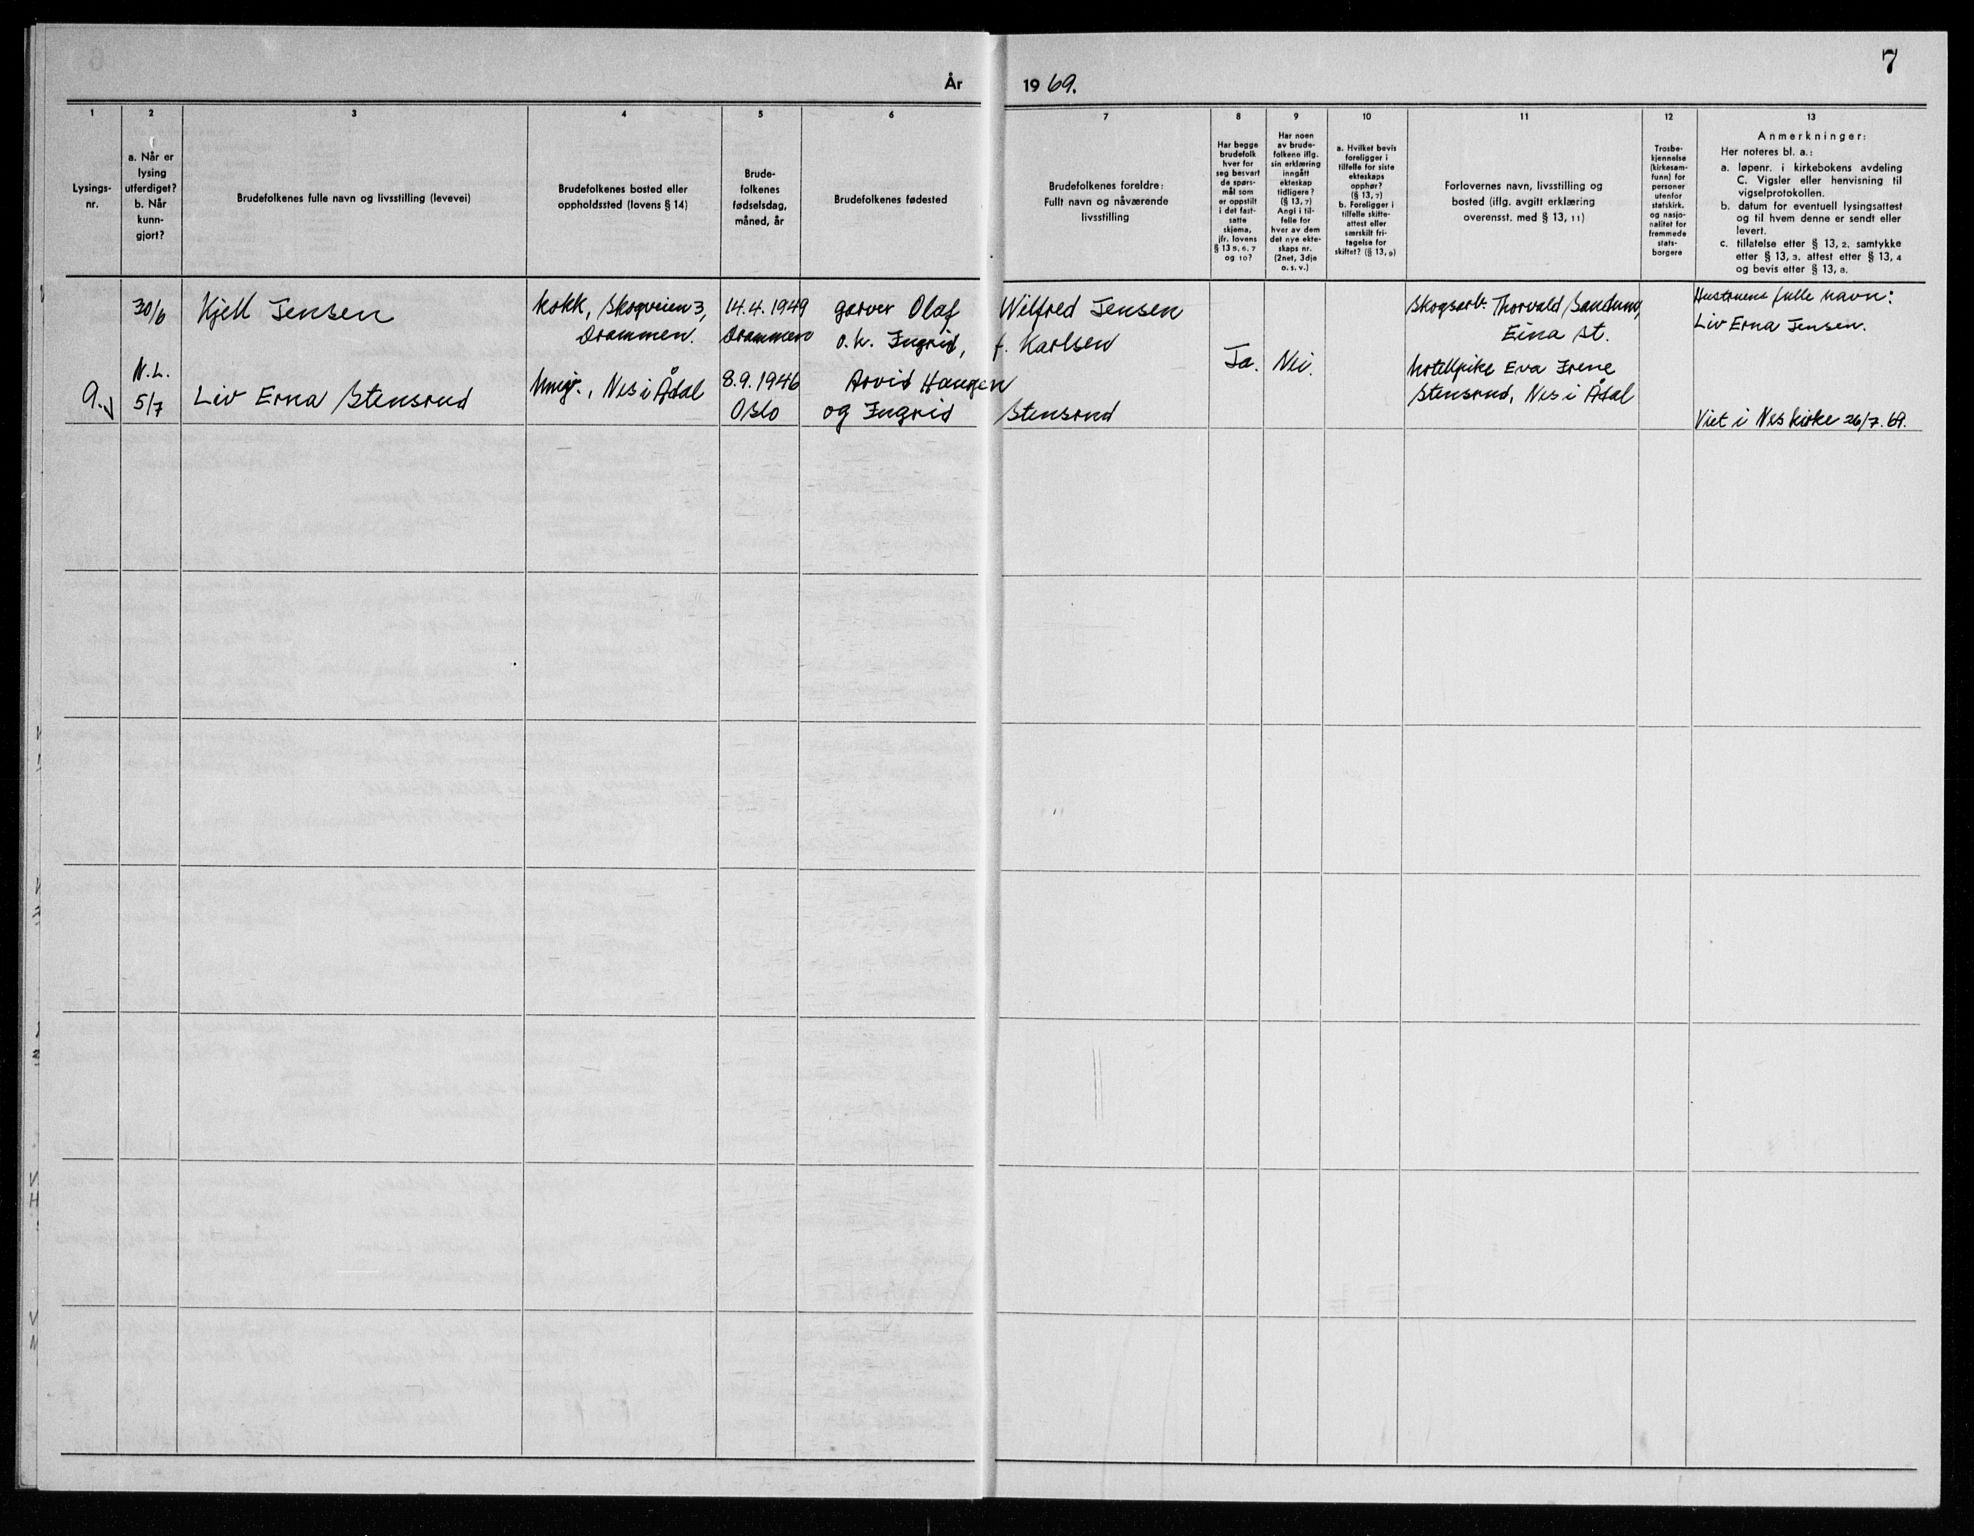 7
År 1969.
1
2
3
4
5
6
7
8
9
10
11
12
13
Lysings-
nr.
a. Når er
lysing
utferdiget?
b. Når
kunn-
gjort?
Brudefolkenes fulle navn og livsstilling (levevei)
Brudefolkenes bosted eller
oppholdssted (lovens § 14)
Brude-
folkenes
fødselsdag,
måned, år
Brudefolkenes fødested
Brudefolkenes foreldre:
Fullt navn og nåværende
livsstilling
Har begge
brudefolk
hver for
seg besvart
de spørs-
mål som
er oppstilt
i det fast-
satte
skjema,
jfr. lovens
§ 13 5, 6, 7
og 10?
Har noen
av brude-
folkene iflg.
sin erklæring
inngått
ekteskap
tidligere?
(§ 13, 7)
Angi i til-
felle for
hver av dem
det nye ekte-
skaps nr.
(2net, 3dje
o. s. v.)
a. Hvilket bevis
foreligger i
tilfelle for siste
ekteskaps
opphør?
(§ 13, 7)
b. Foreligger i
tilfelle skifte-
attest eller
særskilt fri-
tagelse for
skiftet? (§ 13, 9)
Forlovernes navn, livsstilling og
bosted (iflg. avgitt erklæring
overensst. med § 13, 11)
Trosbe-
kjennelse
(kirkesam-
funn) for
personer
utenfor
statskirk.
og nasjo-
nalitet for
fremmede
stats-
borgere
Anmerkninger:
Her noteres bl. a.:
a. løpenr. i kirkebokens avdeling
C. Vigsler eller henvisning til
vigselprotokollen.
b. datum for eventuell lysingsattest
og til hvem denne er sendt eller
levert.
c. tillatelse etter § 13, 2. samtykke
etter § 13, 3. attest etter § 13, 4
og bevis etter § 13, 8.
30/6 Kjell Jensen
kokk, Skogveien 3,
Drammen.
14.4.1949
Drammen
garver Olaf Wilfred Jensen
o.h. Ingrid, f. Karlsen
Skogsarb. Thorvald Sandung,
Eina st.
Hustruens fulle navn:
Liv Erna Jensen.
9. N.L.
5/7
Liv Erna Stensrud
Nes i Ådal
8.9.1946
Oslo
Arvid Haugen
og Ingrid Stensrud
Ja. Nei.
hotellpike Eva Irene
Stensrud, Nes i Ådal
Viet i Nes kirke 26/7.69.